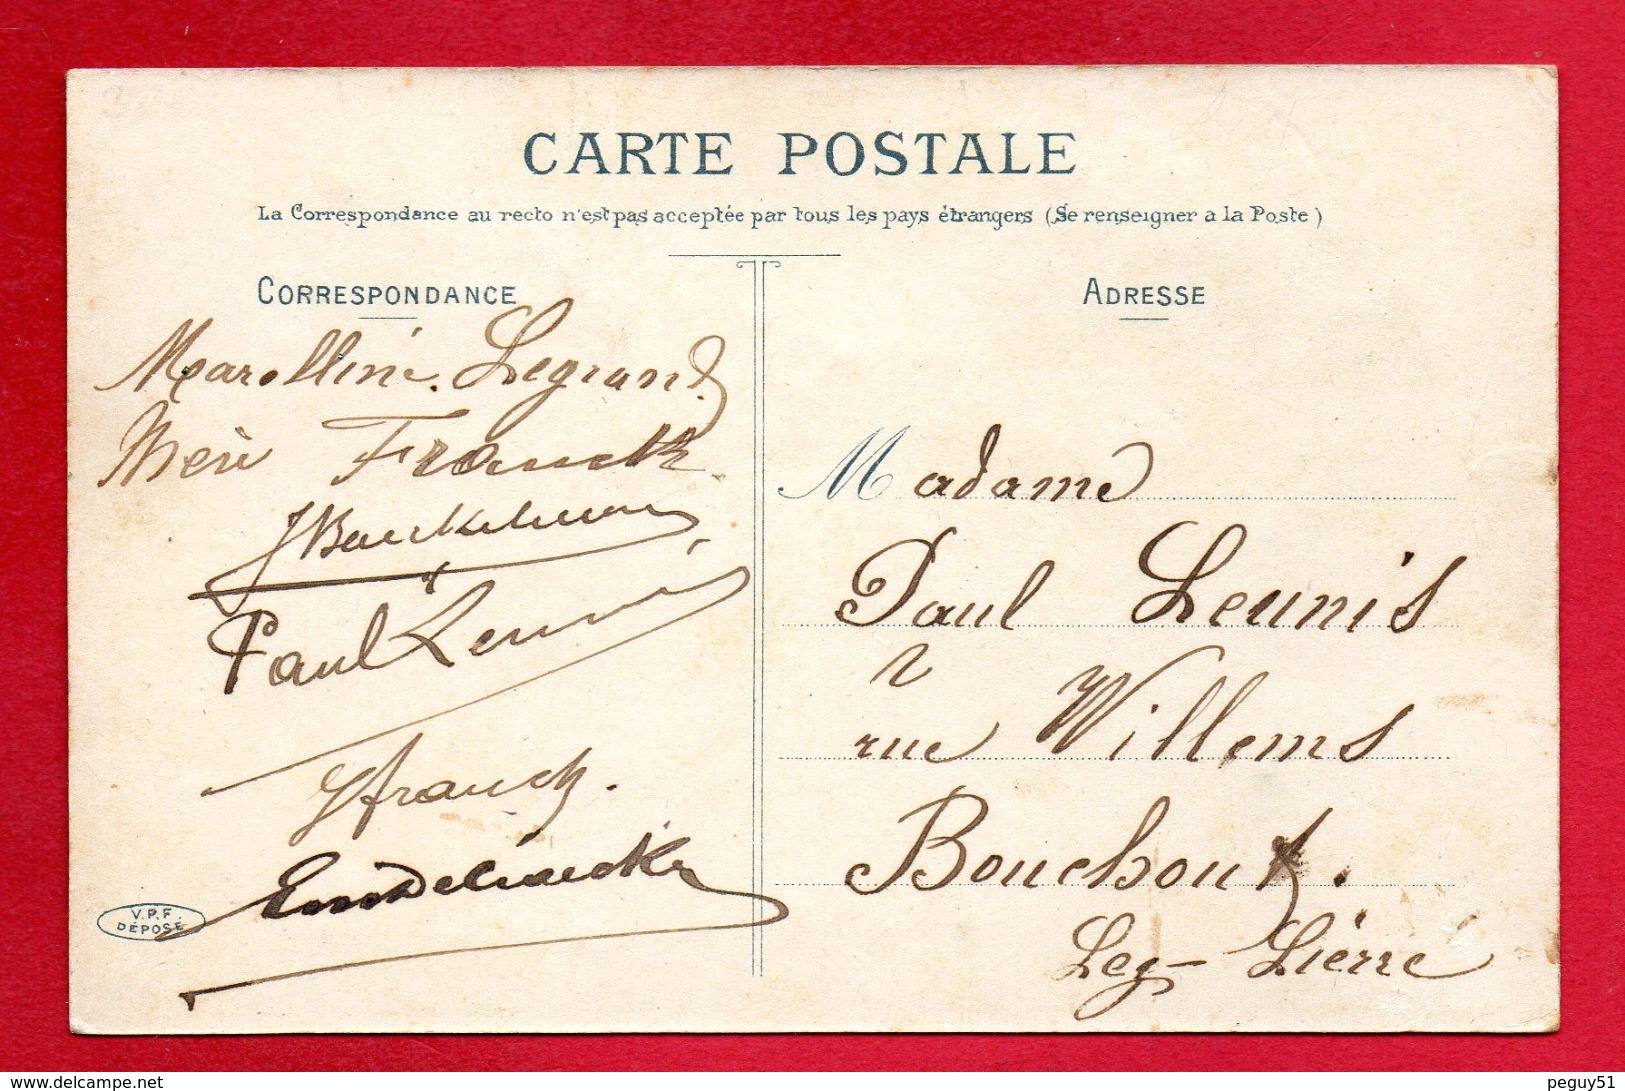 CARTE POSTALE
La Correspondance au recto n'est pas acceptée par tous les pays étrangers (Se renseigner a la Poste)
CORRESPONDANCE
Legrand
Mère Franck
Paul Leunis
Franck.
V.P.F.
DÉPOSÉ
ADRESSE
Madame
Paul Leunis
rue Willems
Bouchout.
Lez-Lierre
www.delcampe.net
peguy51